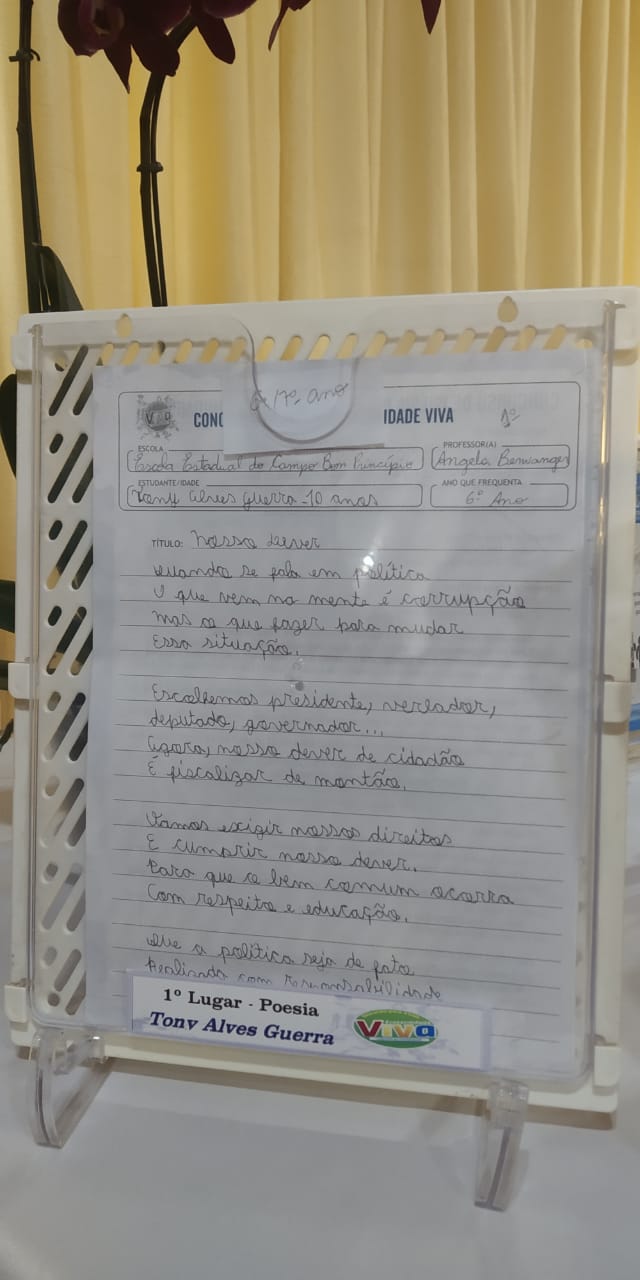 6º/7º ano
VIVO
CONC
IDADE VIVA
1º
ESCOLA
Escola Estadual do Campo Bom Princípio
PROFESSOR(A)
Angela Benwanger
ESTUDANTE/IDADE
Tony Alves Guerra - 10 anos
ANO QUE FREQUENTA
6º Ano
TÍTULO: Nosso dever
Quando se fala em política
O que vem na mente é corrupção
Mas o que fazer para mudar
Essa situação.
Escolhemos presidente, vereador,
deputado, governador...
Agora, nosso dever de cidadão
É fiscalizar de montão.
Vamos exigir nossos direitos
E cumprir nosso dever.
Para que o bem comum ocorra
Com respeito e educação.
Que a política seja de fato
Realizada com responsabilidade
1º Lugar - Poesia
Tony Alves Guerra
VIVO